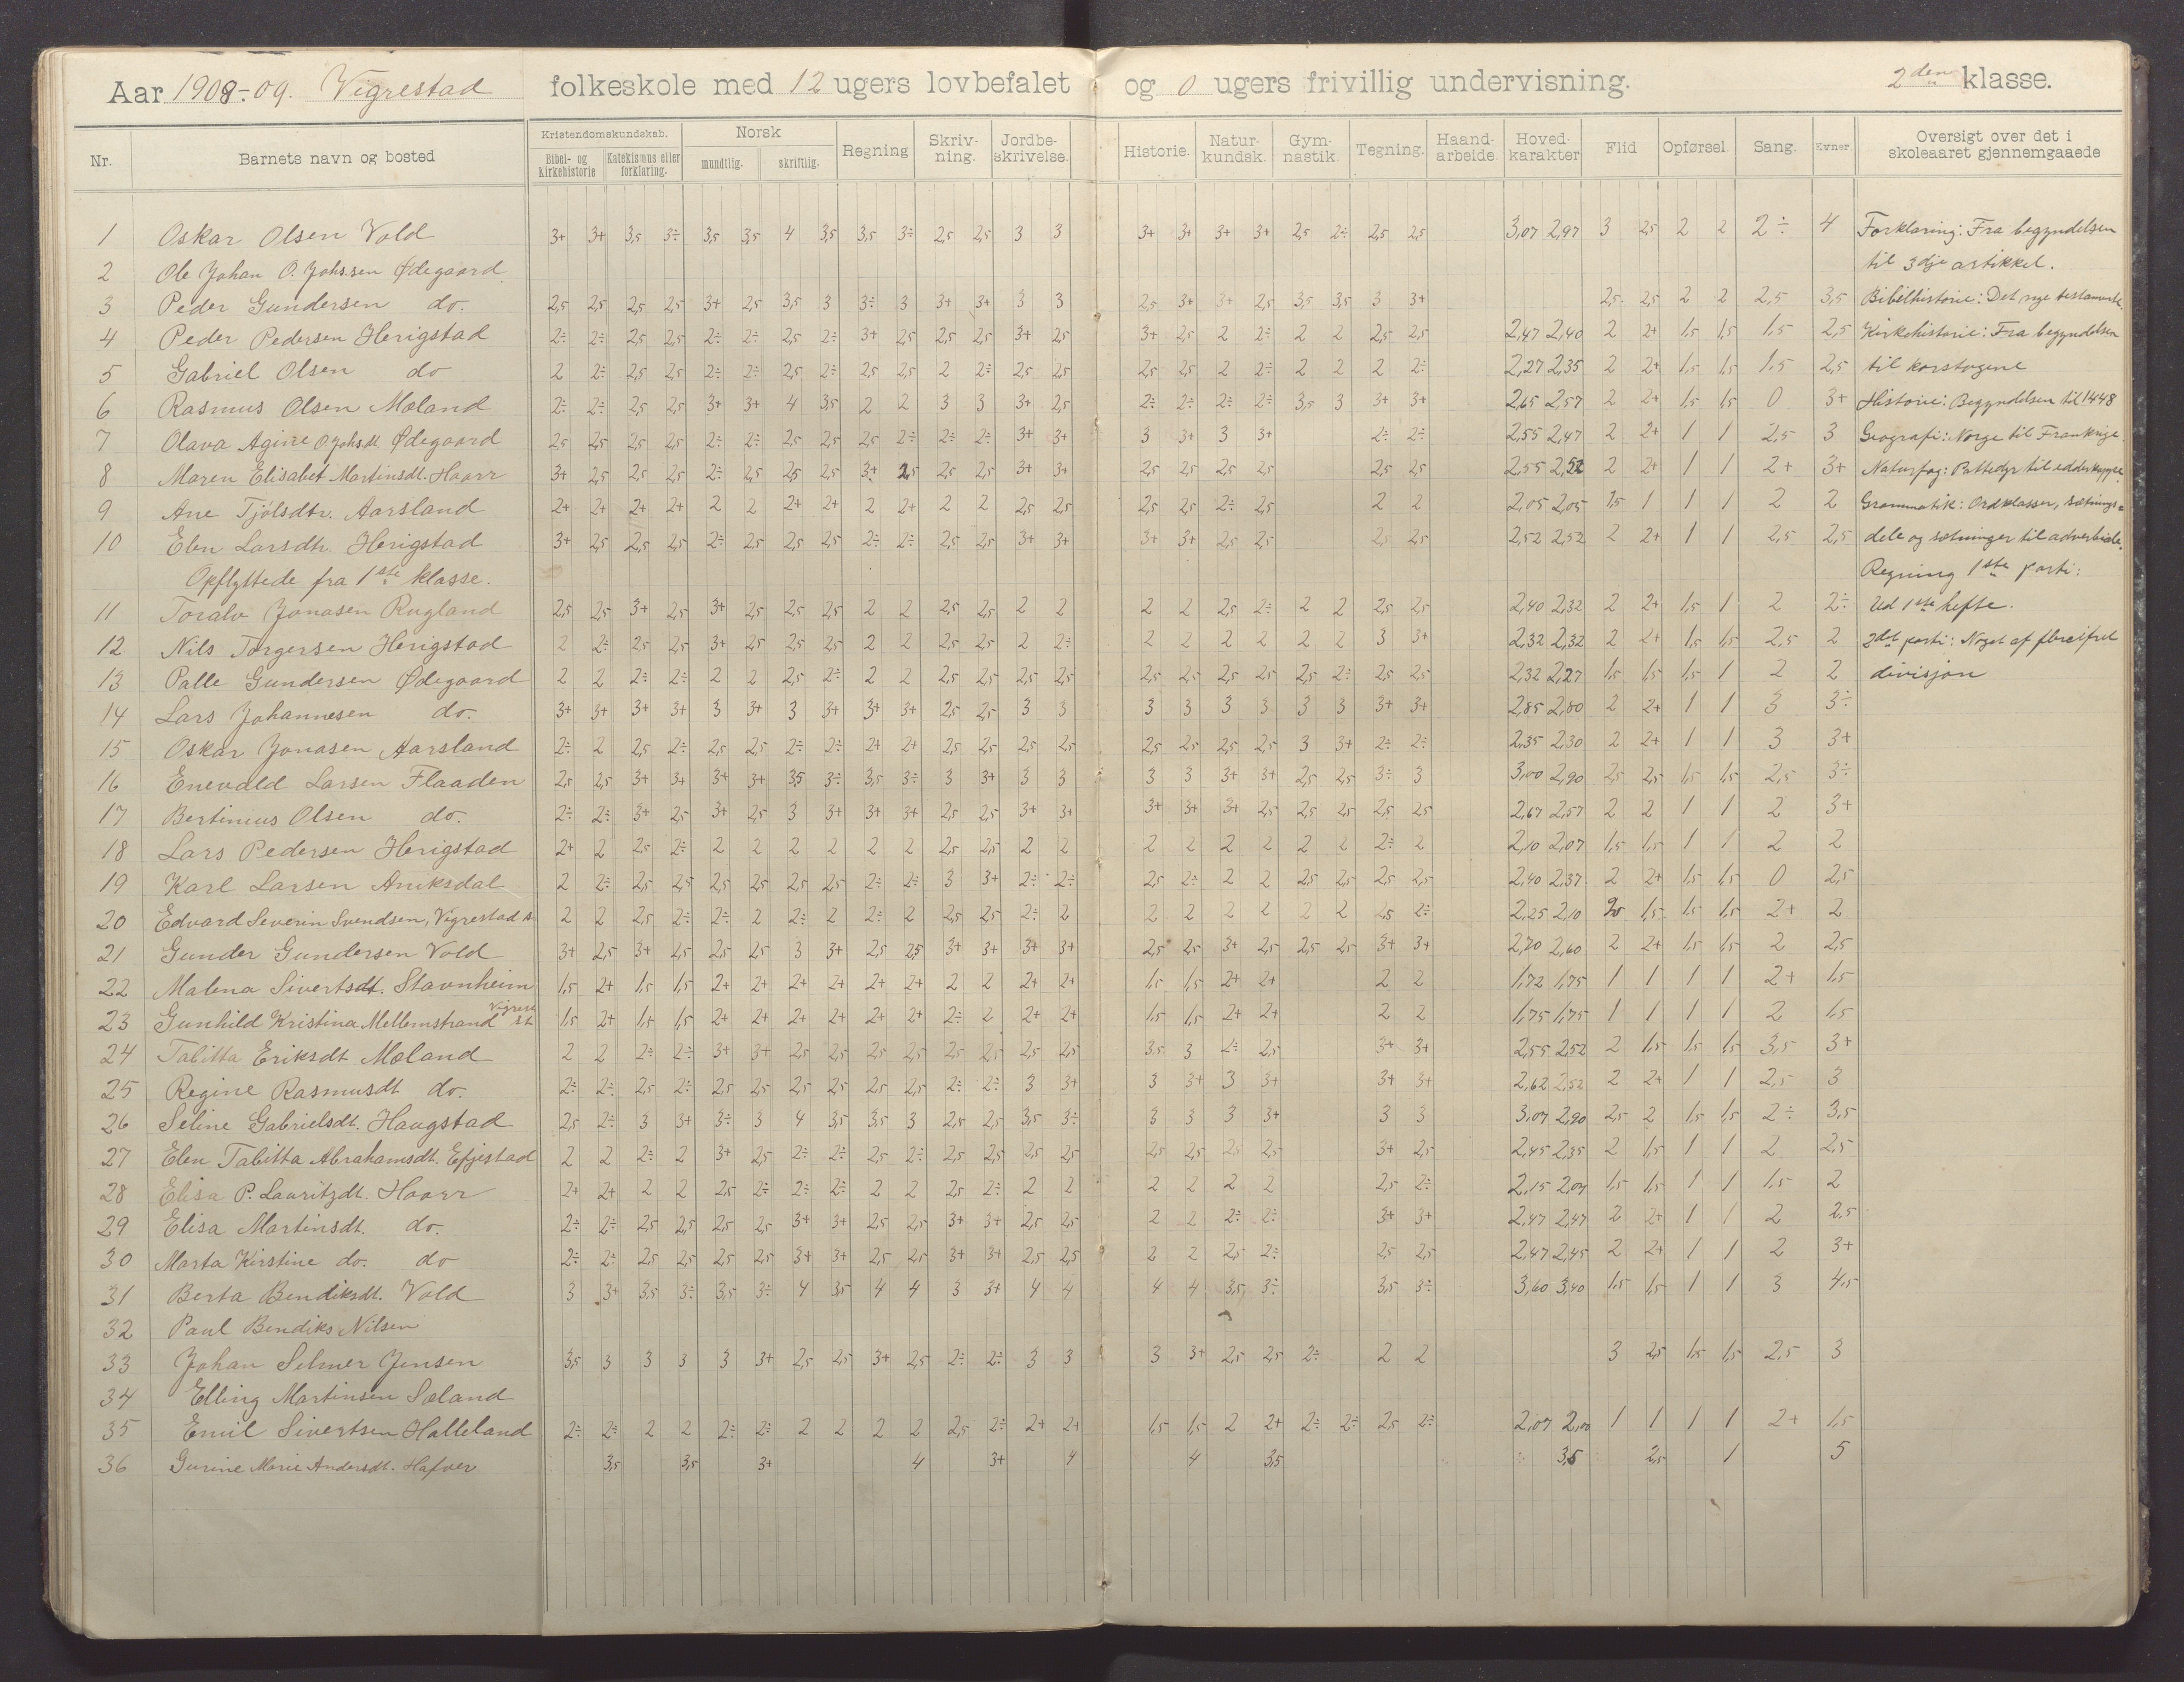 Aar 1908-09. Vigrestad folkeskole med 12 ugers lovbefalet og 0 ugers frivillig undervisning. 2den klasse.
Nr. Barnets navn og bosted Kristendomskundskab. Bibel- og Kirkehistorie Katekismus eller forklaring. Norsk mundtlig. skriftlig. Regning Skrivning. Jordbeskrivelse. Historie. Naturkundsk. Gymnastik. Tegning. Haandarbeide. Hovedkarakter Flid Opførsel Sang. Evner. Oversigt over det i skoleaaret gjennemgaaede
1 Oskar Olsen Vold 3+ 3+ 3,5 3÷ 3,5 3,5 4 3,5 3,5 3÷ 2,5 2,5 3 3 3+ 3+ 3+ 3+ 2,5 2÷ 2,5 2,5 3,07 2,97 3 2,5 2 2 2÷ 4 Forklaring: Fra begyndelsen
2 Ole Johan O. Johssen Ødegaard til 3dje artikkel.
3 Peder Gundersen do. 2,5 2,5 2,5 2,5 3+ 2,5 3,5 3 3÷ 3 3+ 3+ 3 3 2,5 3+ 3+ 2,5 3,5 3,5 3 3+ 2,5 2,5 2 2 2,5 3,5 Bibelhistorie: Det nye testamente.
4 Peder Pedersen Herigstad 2÷ 2÷ 2,5 2,5 2÷ 2÷ 2,5 2÷ 3+ 2,5 2,5 2,5 3+ 2,5 3+ 2,5 2 2÷ 2 2 2,5 2,5 2,47 2,40 2 2+ 1,5 1,5 1,5 2,5 Kirkehistorie: Fra begyndelsen
5 Gabriel Olsen do 2 2÷ 2,5 2,5 2÷ 2÷ 2,5 2÷ 2,5 2,5 2 2÷ 2,5 2,5 2,5 2,5 2 2÷ 2 2 2 2÷ 2,27 2,35 2 2+ 1,5 1,5 1,5 2,5 til korstogene
6 Rasmus Olsen Mæland 2÷ 2÷ 2,5 2,5 3+ 3+ 4 3,5 2 2 3 3 3+ 2,5 2÷ 2÷ 2÷ 2÷ 3,5 3 3+ 3+ 2,65 2,57 2 2+ 1,5 1,5 0 3+ Historie: Begyndelsen til 1448
7 Olava Agine O. Johsdt. Ødegaard 2,5 2,5 2,5 2,5 2÷ 2÷ 2,5 2,5 2,5 2÷ 2÷ 2÷ 3+ 3+ 3 3+ 3 3+ 2÷ 2÷ 2,55 2,47 2 2+ 1 1 2,5 3 Geografi: Norge til Frankrige.
8 Maren Elisabet Martinsdt. Haarr 3+ 2,5 2,5 2,5 2÷ 2,5 2,5 2,5 3+ 2,5 2,5 2,5 3+ 3+ 2,5 2,5 2,5 2,5 2,5 2,5 2,55 2,52 2 2+ 1 1 2+ 3+ Naturfag: Pattedyr til edderkoppe.
9 Ane Tjølsdtr. Aarsland 2+ 2+ 2+ 2+ 2 2 2+ 2+ 2 2+ 2 2 2,5 2,5 2,5 2,5 2÷ 2,5 2 2 2,05 2,05 1,5 1 1 1 2 2 Grammatik: Ordklasser, sætnings=
10 Elen Larsdtr. Herigstad 3+ 2,5 2,5 2,5 2÷ 2,5 2,5 2,5 2÷ 2÷ 2,5 2,5 3+ 3+ 3+ 3+ 2,5 2,5 2,5 2,5 2,52 2,52 2 2+ 1 1 2,5 2,5 dele og sætninger til adverbiale.
Opflyttede fra 1ste klasse. Regning 1ste parti:
11 Toralv Jonasen Rugland 2,5 2,5 3+ 2,5 3+ 2,5 2,5 2,5 2 2 2,5 2,5 2 2 2 2 2,5 2÷ 2 2 2,5 2,5 2,40 2,32 2 2+ 1,5 1 2 2÷ Ud 1ste hefte.
12 Nils Torgersen Herigstad 2 2÷ 2,5 2,5 3+ 2,5 2,5 2,5 2 2 2,5 2,5 2 2÷ 2 2 2 2 2 2 3 3+ 2,32 2,32 2 2+ 1,5 1,5 2,5 2 2det parti: Noget af flercifret
13 Palle Gundersen Ødegaard 2 2 2÷ 2÷ 2 2 2,5 2÷ 2 2 2,5 2,5 2,5 2,5 2,5 2,5 2,5 2,5 2,5 2÷ 2,5 2,5 2,32 2,27 1,5 1,5 1,5 1 2 2 divisjon
14 Lars Johannesen do. 3+ 3+ 3+ 3+ 3 3+ 3 3+ 3+ 3+ 2,5 2,5 3 3 3 3 3 3 3 3 3+ 3+ 2,85 2,80 2 2+ 1 1 3 3÷
15 Oskar Jonasen Aarsland 2÷ 2 2,5 2÷ 2,5 2,5 2÷ 2÷ 2+ 2+ 2,5 2,5 2,5 2,5 2,5 2,5 2,5 2,5 3 3+ 2÷ 2÷ 2,35 2,30 2 2+ 1 1 3 3+
16 Enevald Larsen Flaaden 2,5 2,5 3+ 3+ 3+ 3+ 3,5 3÷ 3,5 3÷ 3 3+ 3 3 3 3 3+ 3+ 2,5 2,5 3÷ 3 3,00 2,90 2,5 2,5 1,5 1,5 2,5 3÷
17 Bertinius Olsen do. 2÷ 2÷ 3+ 2,5 3+ 2,5 3 3+ 3+ 3+ 2,5 2,5 3+ 3+ 3+ 3+ 3+ 2,5 2,5 2,5 2,5 2,5 2,67 2,57 2 2 1 1 2 3+
18 Lars Pedersen Herigstad 2+ 2 2,5 2÷ 2 2 2 2 2 2 2,5 2,5 2 2 2 2 2 2 2 2 2÷ 2 2,10 2,07 1,5 1,5 1 1 2 2
19 Karl Larsen Aniksdal 2 2÷ 2,5 2,5 2,5 2,5 2,5 2,5 2÷ 2÷ 3 3+ 2÷ 2÷ 2,5 2÷ 2 2 2,5 2,5 2,5 2,5 2,40 2,37 2 2+ 1,5 1,5 0 2,5
20 Edvard Severin Svendsen, Vigrestad s. 2 2 2,5 2÷ 2÷ 2 2÷ 2 2÷ 2 2,5 2,5 2÷ 2 2 2 2 2 2 2 2,5 2÷ 2,25 2,10 1,5 1,5 1,5 2+ 2
21 Gunder Gundersen Vold 3+ 2,5 3+ 2,5 2,5 2,5 3 3+ 2,5 2,5 3+ 3+ 3+ 3+ 2,5 2,5 3+ 2,5 2,5 2,5 3+ 3+ 2,70 2,60 2 2+ 1,5 1,5 2 2,5
22 Malena Sivertsdt. Stavnheim 1,5 2+ 1,5 1,5 2+ 2+ 2+ 2+ 2+ 2+ 2 2 2+ 2+ 1,5 1,5 2+ 2+ 2 2 1,72 1,75 1 1 1 1 2+ 1,5
23 Gunhild Kristina Mellemstrand Vigrest. st. 1,5 2+ 1,5 1,5 2+ 2+ 2+ 2+ 2+ 2+ 2÷ 2 2+ 2+ 1,5 1,5 2+ 2+ 2 2 1,75 1,75 1 1 1 1 2 1,5
24 Tabitta Eriksdt Mæland 2 2 2÷ 2÷ 3+ 3+ 2,5 2,5 2,5 2,5 2,5 2,5 2,5 2,5 3,5 3 2÷ 2,5 3+ 3+ 2,55 2,52 2 1,5 1,5 1,5 3,5 3+
25 Regine Rasmusdt do. 2÷ 2÷ 2,5 2÷ 2,5 2,5 2,5 2,5 2,5 2,5 2÷ 2÷ 3 3+ 3 3+ 3 3+ 3+ 3+ 2,62 2,52 2 2+ 1 1 2,5 3
26 Seline Gabrielsdt. Haugstad 2,5 2÷ 3 3+ 3÷ 3 4 3,5 3,5 3 2,5 2,5 3,5 3÷ 3 3 3 3+ 3 3 3,07 2,90 2,5 2 1,5 1,5 2÷ 3,5
27 Elen Tabitta Abrahamsdt. Efjestad 2 2 2÷ 2 3+ 2,5 2÷ 2÷ 2,5 2÷ 2,5 2,5 2,5 2,5 2,5 2,5 2,5 2,5 3+ 2,5 2,45 2,35 2 1,5 1 1 2 2,5
28 Elisa P. Lauritzdt. Haarr 2+ 2+ 2 2 2,5 2÷ 2÷ 2÷ 2 2 2,5 2÷ 2 2 2 2 2 2 2,5 2÷ 2,15 2,07 1,5 1,5 1 1 1,5 2
29 Elisa Martinsdt. do. 2÷ 2÷ 2,5 2,5 2,5 2,5 3+ 3+ 2,5 2,5 3+ 3+ 2,5 2,5 2 2 2÷ 2÷ 3+ 3+ 2,47 2,47 2 2+ 1 1 2 2,5
30 Marta Kirstine do. do 2÷ 2÷ 2,5 2,5 2,5 2,5 3+ 3+ 2,5 2,5 3+ 3+ 2,5 2,5 2 2 2,5 2÷ 2,5 2,5 2,47 2,45 2 2+ 1 1 2 3+
31 Berta Bendiksdt. Vold 3 3+ 3,5 3÷ 3,5 3÷ 4 3,5 4 4 3 3+ 4 4 4 4 3,5 3÷ 3,5 3÷ 3,60 3,40 1,5 1,5 1 1 3 4,5
32 Paul Bendiks Nilsen
33 Johan Selmer Jensen 3,5 3 3 3 3 3+ 2,5 2,5 3+ 2,5 2÷ 2÷ 3 3 3 3+ 2,5 2,5 2÷ 2 2 3 2,5 1,5 1,5 2,5 3
34 Elling Martinsen Sæland
35 Emil Sivertsen Halleland 2÷ 2÷ 2 2 2÷ 2÷ 2 2 2 2 2,5 2÷ 2+ 2+ 1,5 1,5 2 2+ 2÷ 2÷ 2,5 2÷ 2,07 2,00 1 1 1 1 2+ 1,5
36 Gurine Marie Andersdt. Hafver 3,5 3,5 3+ 4 3+ 4 4 3,5 3,5 2,5 1 5